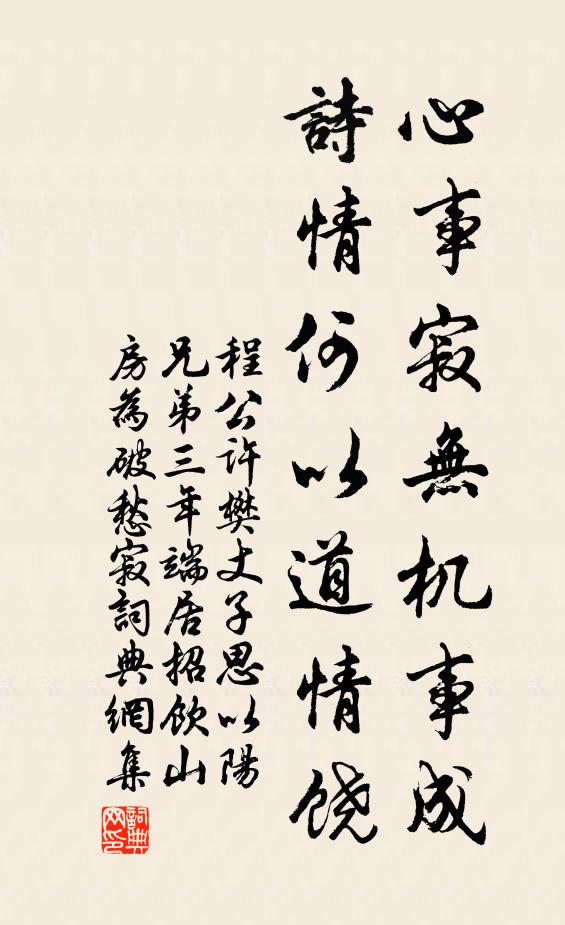 心事寂無机事成
詩情何以道情饶
程公许樊丈子思以陽
兄弟三年端居招飲山
房為破愁寂詞典網集
詞典
网印